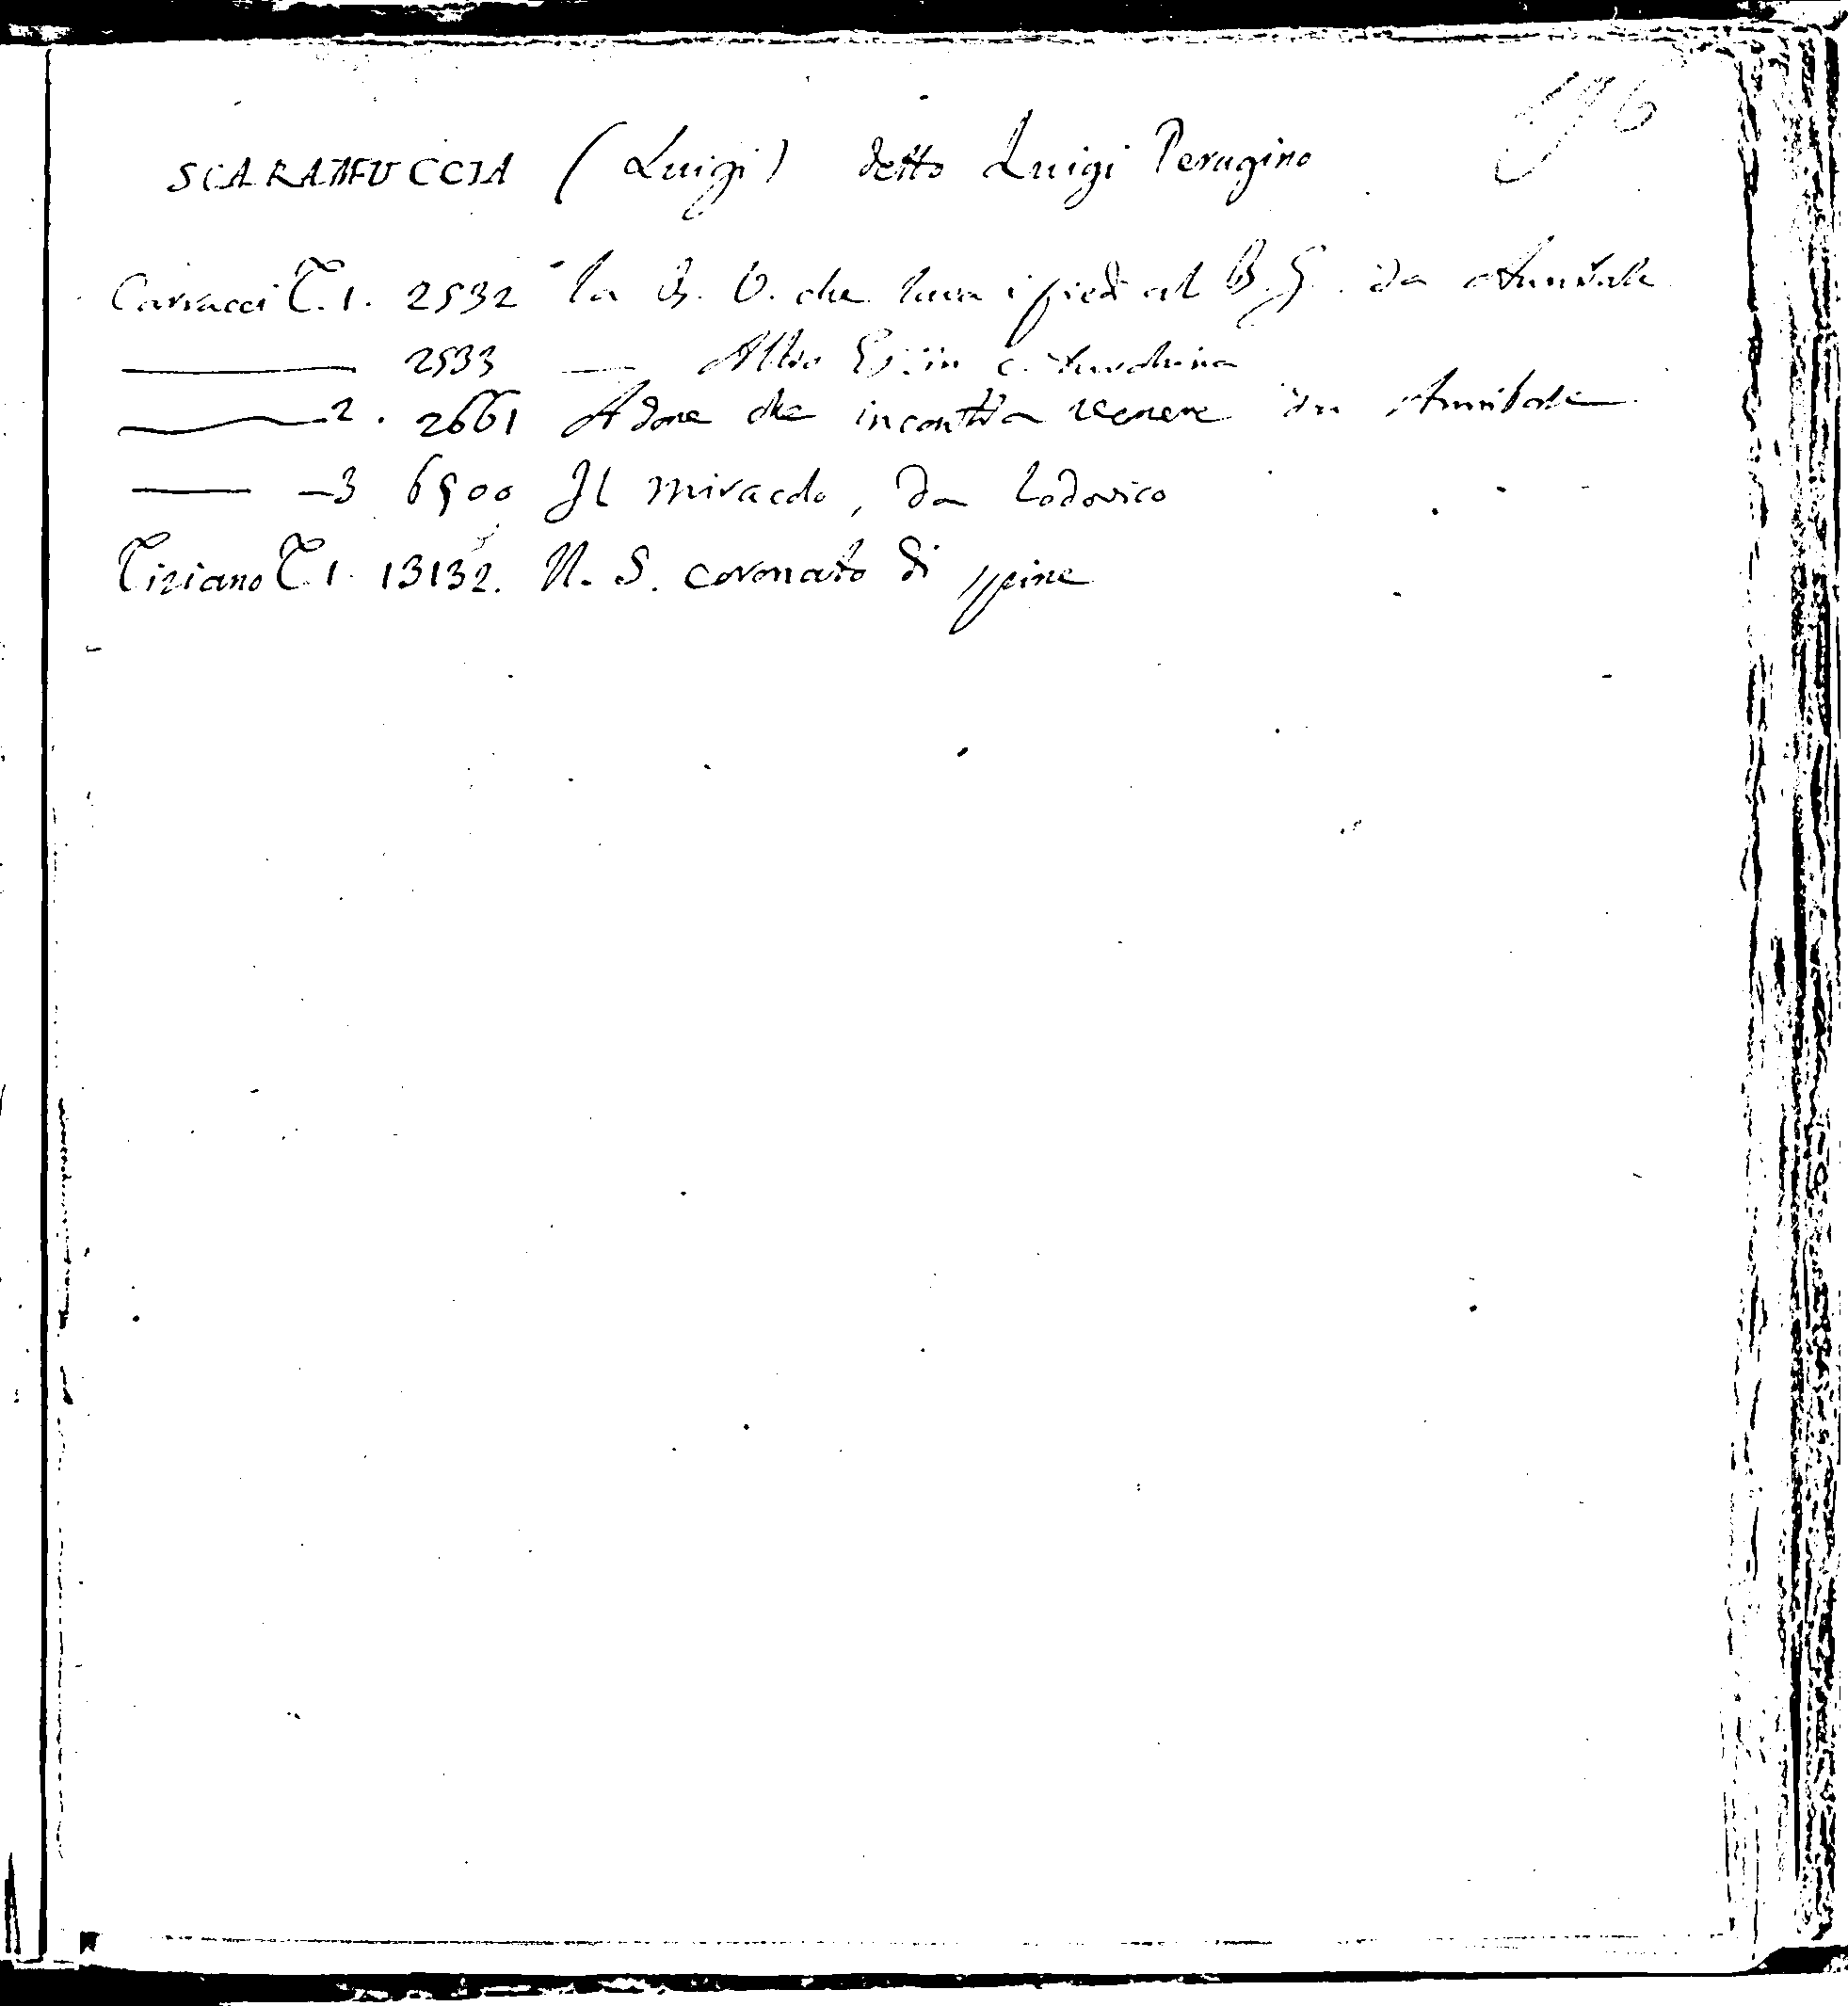 196
SCARAMUCCIA (Luigi) detto Luigi Perugino
Carracci T. 1. 2532 la B. V. che lava i piedi al B. G. da Annibale
2533 — Altro Es: in c. turchina
2. 2661 Adone che incontra Venere da Annibale
— 3 6900 Il miracolo, da Lodovico
Tiziano T. 1. 13132. N. S. coronato di spine